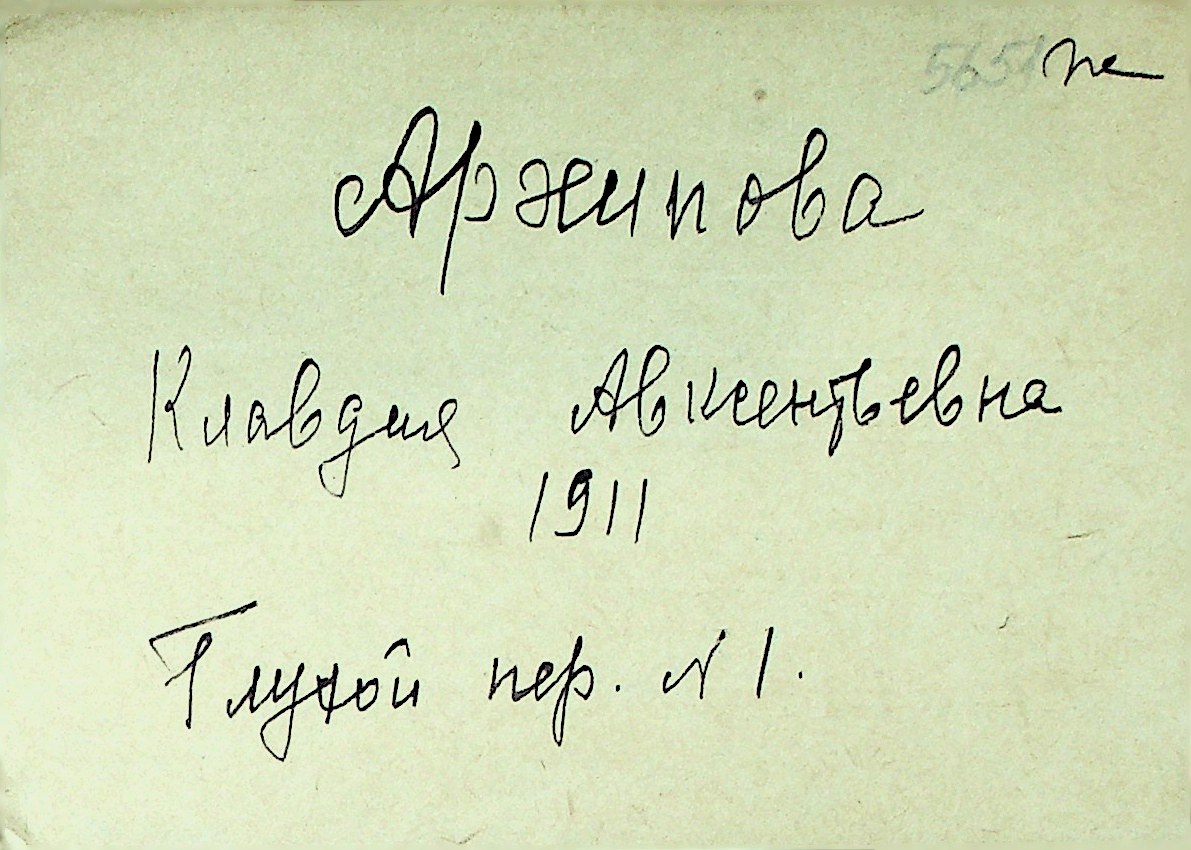 5651 пе
Архипова
Клавдия Авксентьевна
1911
Глухой пер. N 1.